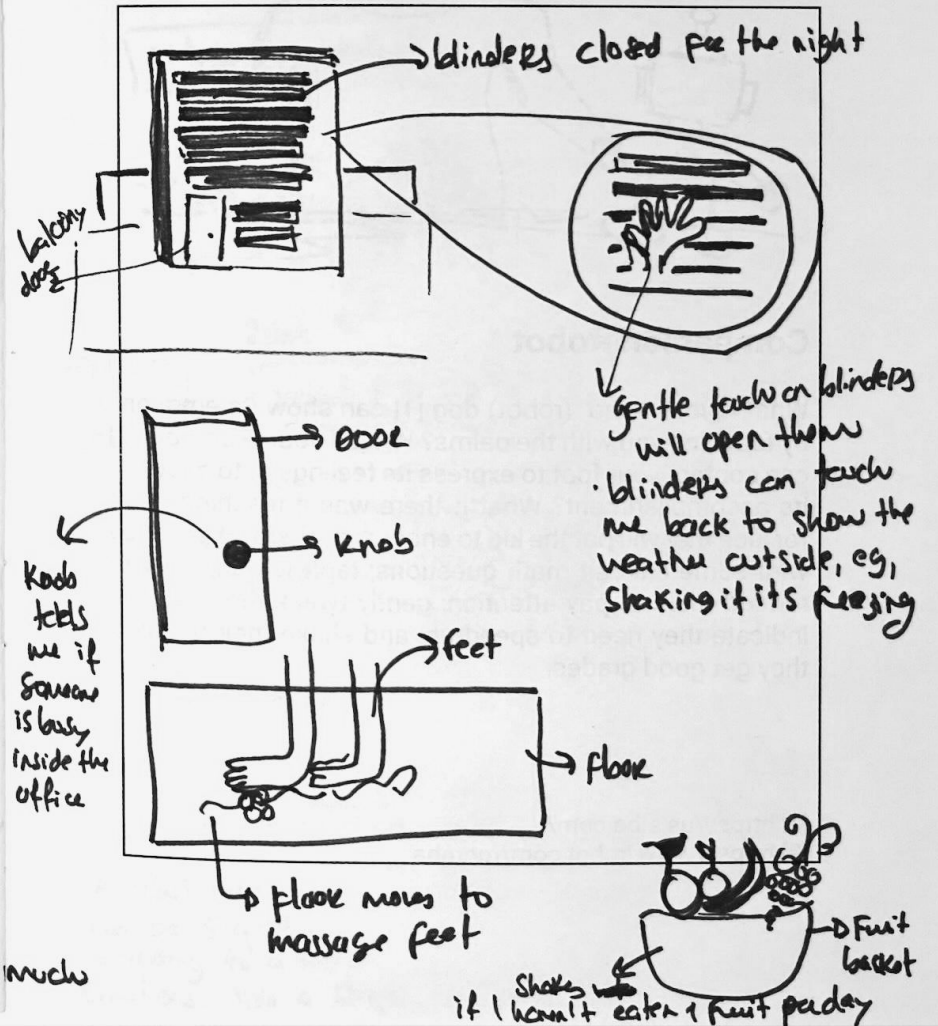 blinders closed for the night
balcony
door
gentle touch on blinders
will open them
blinders can touch
me back to show the
weather outside, eg,
shaking if its freezing
DOOR
KNOB
Knob
tells
me if
someone
is busy
inside the
office
feet
floor
floor moves to
massage feet
much
Fruit
basket
Shakes
if I havn't eaten 1 fruit per day
Companion Robot
they get good grades.